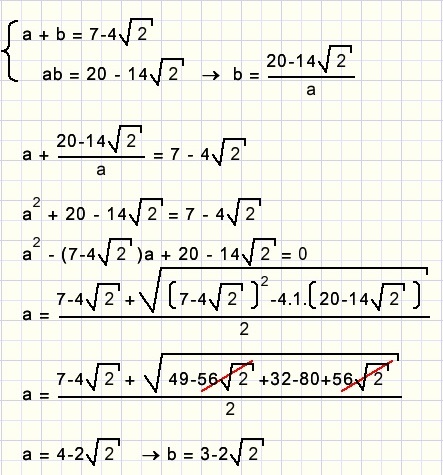 a + b = 7-4√2
ab = 20 - 14√2 → b = (20-14√2)/a
a + (20-14√2)/a = 7 - 4√2
a² + 20 - 14√2 = 7 - 4√2
a² - (7-4√2)a + 20 - 14√2 = 0
a = (7-4√2 + √((7-4√2)² -4.1.(20-14√2)))/2
a = (7-4√2 + √(49-56√2 +32-80+56√2))/2
a = 4-2√2 → b = 3-2√2